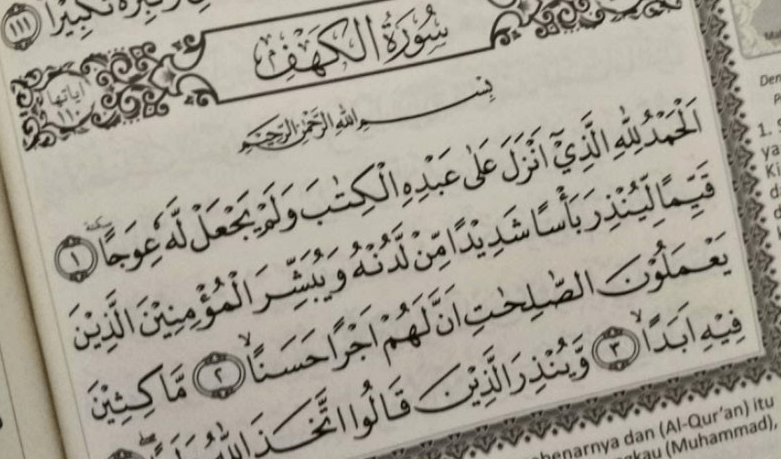 وَكَبِّرْهُ تَكْبِيْرًا ١١١
سُوْرَةُ الْكَهْفِ
اٰيَاتُهَا
١١٠
بِسْمِ اللّٰهِ الرَّحْمٰنِ الرَّحِيْمِ
اَلْحَمْدُ لِلّٰهِ الَّذِيْٓ اَنْزَلَ عَلٰى عَبْدِهِ الْكِتٰبَ وَلَمْ يَجْعَلْ لَّهٗ عِوَجًا ۜ ١
قَيِّمًا لِّيُنْذِرَ بَأْسًا شَدِيْدًا مِّنْ لَّدُنْهُ وَيُبَشِّرَ الْمُؤْمِنِيْنَ الَّذِيْنَ
يَعْمَلُوْنَ الصّٰلِحٰتِ اَنَّ لَهُمْ اَجْرًا حَسَنًاۙ ٢ مَّاكِثِيْنَ
فِيْهِ اَبَدًاۙ ٣ وَّيُنْذِرَ الَّذِيْنَ قَالُوا اتَّخَذَ اللّٰهُ وَلَدًا
1.
ya
Ki
benarnya dan (Al-Qur'an) itu
ngkau (Muhammad),